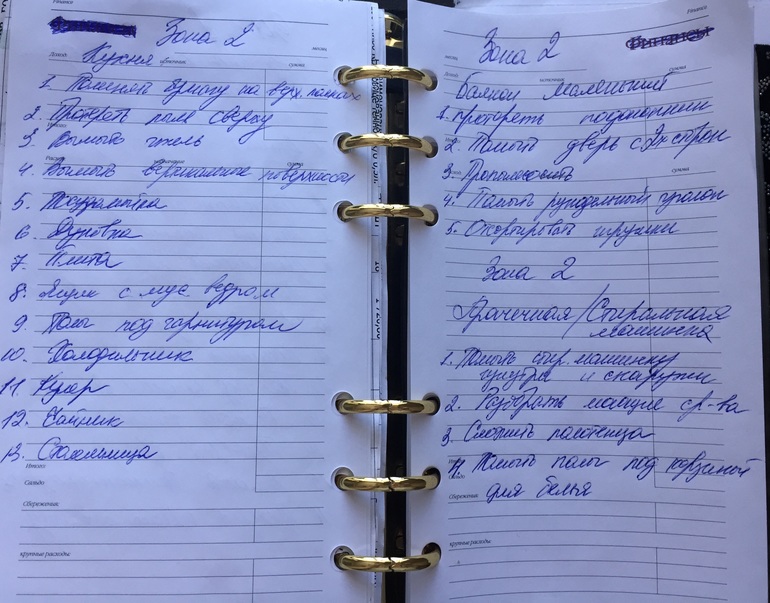 Финансы
Зона 2
месяц
Доход
источник
сумма
Кухня
1. Поменять бумагу на верх. полках
2. Протереть поле сверху
3. Вымыть
4. Вымыть вертикальные поверхности
Расход
сумма
5. Посудомойка
6. Духовка
7. Плита
8. Ящик с мус. ведром
9. Полы под гарнитуром
10. Холодильник
11. Кулер
12. Чайник
13.
Итого:
Сальдо
Сбережения:
крупные расходы:
Финансы
Зона 2
Финансы
месяц
Доход
источник
сумма
Балкон маленький
1. Протереть подоконники
2. Помыть дверь с 2х сторон
3. Пропылесосить
сумма
4. Помыть рукодельный уголок
5. Отсортировать игрушки
Зона 2
Прачечная/Стиральная
машинка
1. Помыть стир. машинку
внутри и снаружи
2. Разобрать моющие ср-ва
3. полотенца
4. Помыть полы под корзиной
Итого:
Сальдо
Сбережения:
для белья
крупные расходы: